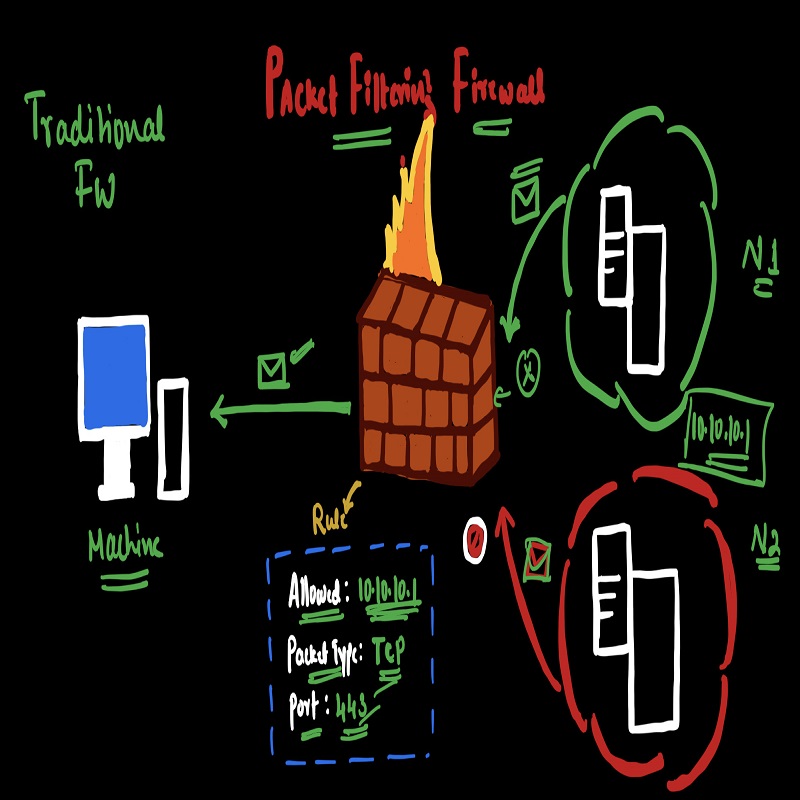 Packet Filtering Firewall
Traditional
FW
N1
10.10.10.1
Machine
Rule
N2
Allowed: 10.10.10.1
Packet Type: TCP
Port: 443